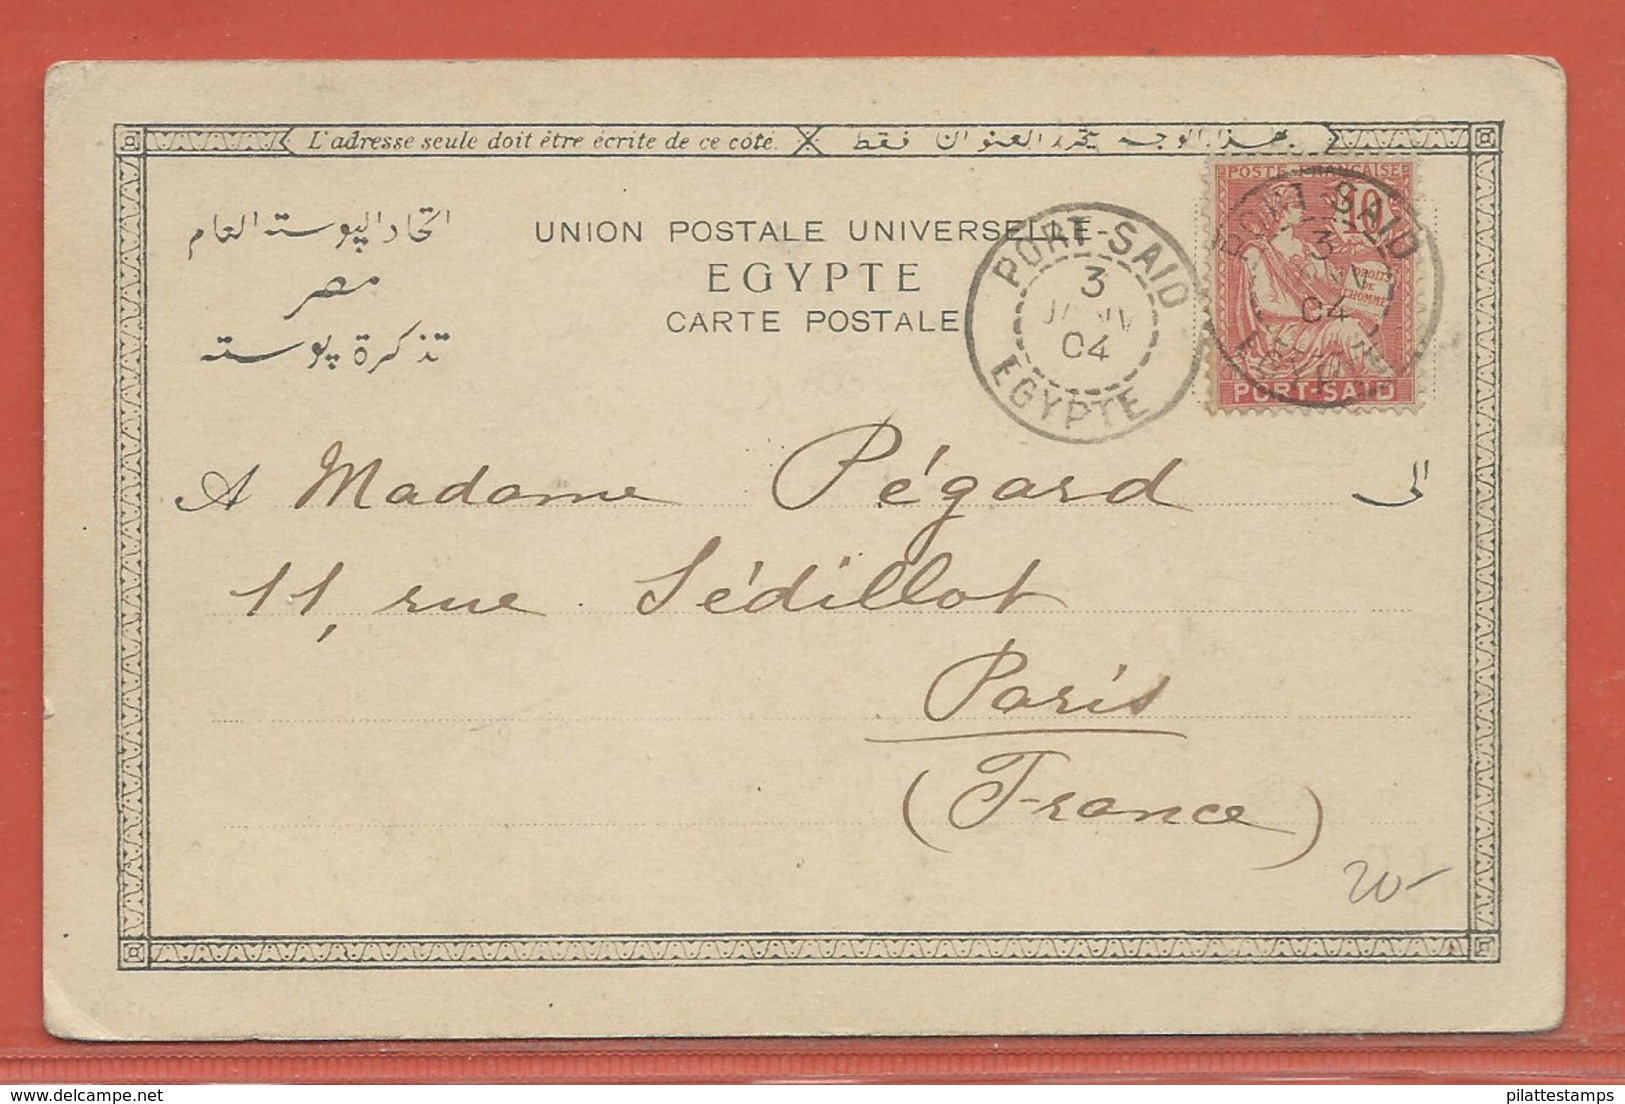 L'adresse seule doit être écrite de ce côté.
بهذا الوجه يحرر العنوان فقط
اتحاد البوسته العام
مصر
تذكرة بوسته
UNION POSTALE UNIVERSELLE
EGYPTE
CARTE POSTALE
PORT-SAID
3
JANV
04
EGYPTE
POSTE FRANÇAISE
10
DROITS
DE
L'HOMME
PORT-SAÏD
PORT SAID
3
04
EGYPTE
A Madame Pégard الى
11, rue Sédillot
Paris
(France)
20-
pilattestamps